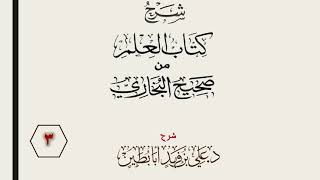 شرح
كتاب العلم
من
صحيح البخاري
٣
شرح
د. علي بن فهد أبا بطين